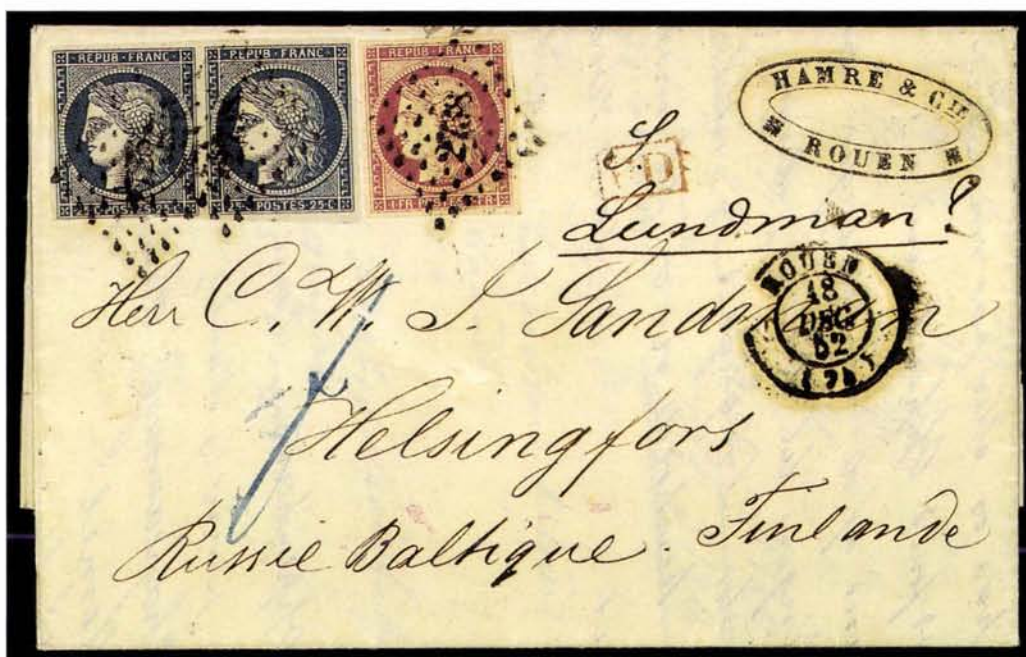 REPUB·FRANC·
REPUB·FRANC·
REPUB·FRANC·
POSTES·25·C·
1·FR·
HAMRE & CIE
ROUEN
PD
S
Lundman?
ROUEN
18
DEC
52
(74)
Herr C. W. S. Sandman
Helsingfors
Russie Baltique. Finlande